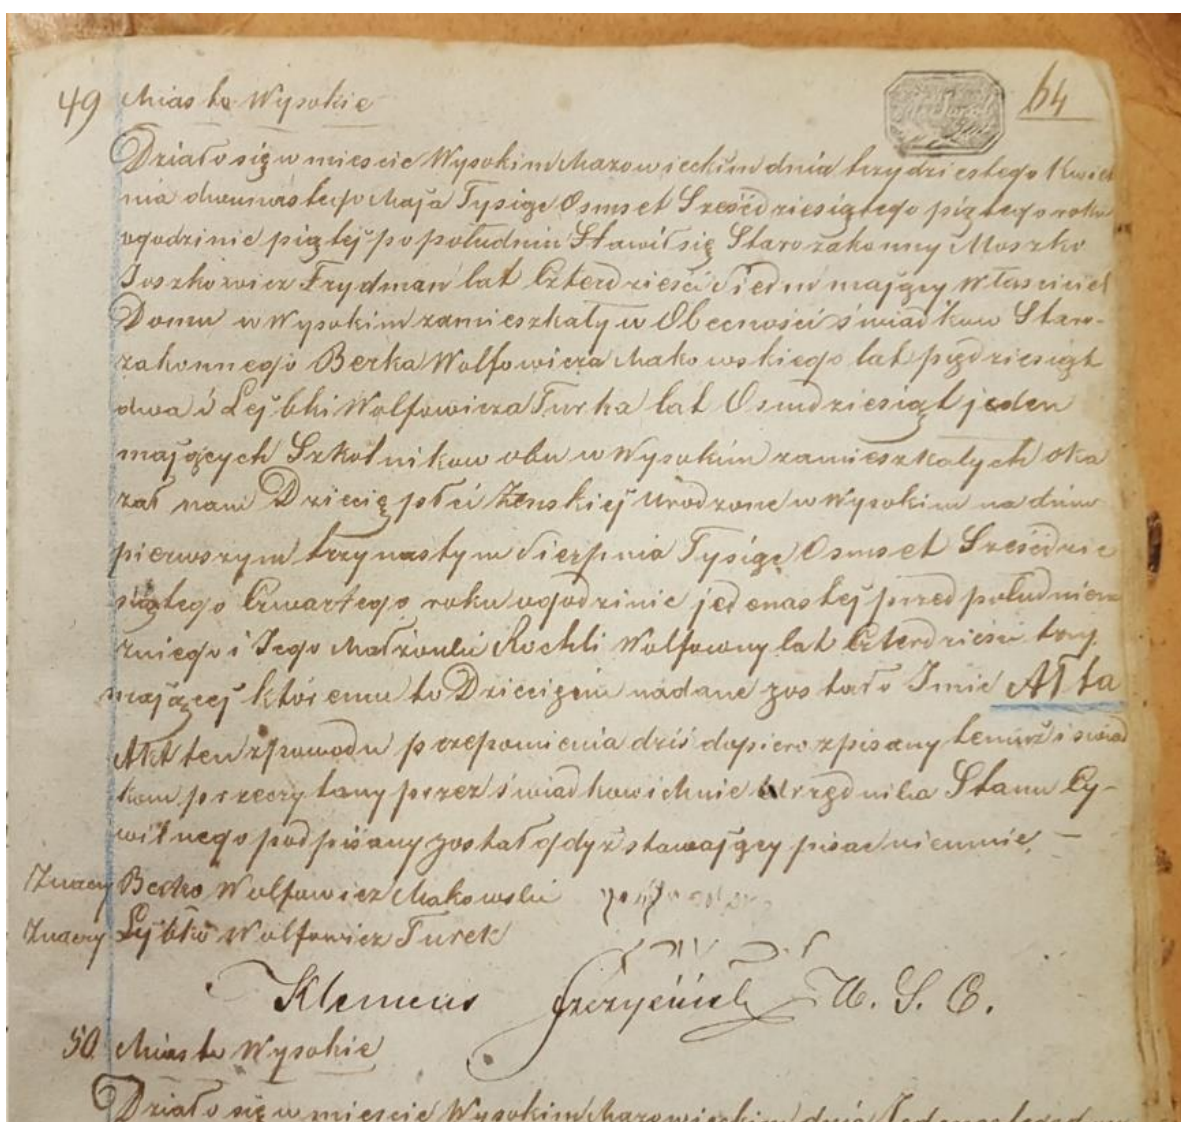 49 Miasto Wysokie 64
Działo się w mieście Wysokim Mazowieckim dnia trzydziestego Kwiet
nia dwunastego Maja Tysiąc Osmset Sześćdziesiątego piątego roku
o godzinie piątej po południu Stawił się Starozakonny Moszko
Joszkowicz Frydman lat Czterdzieści Siedm mający Właściciel
Domu w Wysokim zamieszkały w Obecności świadkow Staro-
zakonnego Berka Wolfowicza Makowskiego lat pięćdziesiąt
dwa i Lejbki Wolfowicza Turka lat Osmdziesiąt jeden
mających Szkolnikow obu w Wysokim zamieszkałych oka
zał nam Dziecię płci Żenskiej urodzone w Wysokim na dniu
pierwszym trzynastym Sierpnia Tysiąc Osmset Sześćdzie
siątego Czwartego roku o godzinie jedenastej przed południem
z niego i Jego Małżonki Rochli Wolfowny lat Czterdzieści trzy
mającej któremu to Dziecięciu nadane zostało Imie Alta
Akt ten z powodu przepomienia dziś dopiero spisany temuż i świad
kom przeczytany przez świadkow i mnie Urzędnika Stanu Cy-
wilnego podpisany został gdyż stawający pisać nie umie. —
Znaczy Berko Wolfowicz Makowski
Znaczy Lejbko Wolfowicz Turek
Klemens U. S. C.
50 Miasto Wysokie
Działo się w mieście Wysokim Mazowieckim dnia